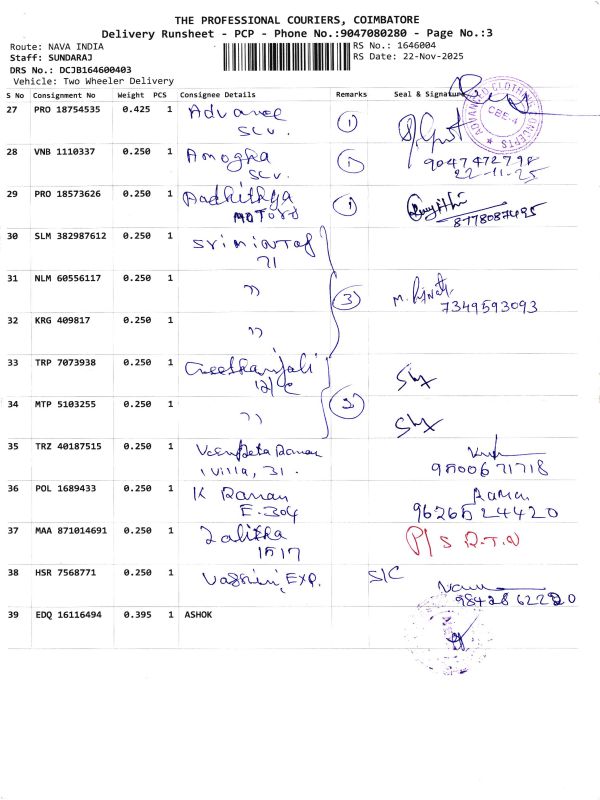 THE PROFESSIONAL COURIERS, COIMBATORE
Delivery Runsheet - PCP - Phone No.:9047080280 - Page No.:3
Route: NAVA INDIA
RS No.: 1646004
Staff: SUNDARAJ
RS Date: 22-Nov-2025
DRS No.: DCJB164600403
Vehicle: Two Wheeler Delivery
S No Consignment No Weight PCS Consignee Details Remarks Seal & Signature
27 PRO 18754535 0.425 1 Advance 1
SLV.
ADVANCED CLOTHING CONCEPTS
CBE-4
28 VNB 1110337 0.250 1 Amogha 1
SLV.
9047472798
22-11-25
29 PRO 18573626 0.250 1 Aadhithya 1
MOTORS
8778087495
30 SLM 382987612 0.250 1
71
31 NLM 60556117 0.250 1 " 3
7349593093
32 KRG 409817 0.250 1 "
33 TRP 7073938 0.250 1 Geethanjali
12/C
34 MTP 5103255 0.250 1 " 2
35 TRZ 40187515 0.250 1 Raman
Villa, 31.
9500671718
36 POL 1689433 0.250 1 K Raman Raman
E-304 9626524420
37 MAA 871014691 0.250 1 Lalitha P/S R.T.N
1517
38 HSR 7568771 0.250 1 Exp. S/C
9842862220
39 EDQ 16116494 0.395 1 ASHOK